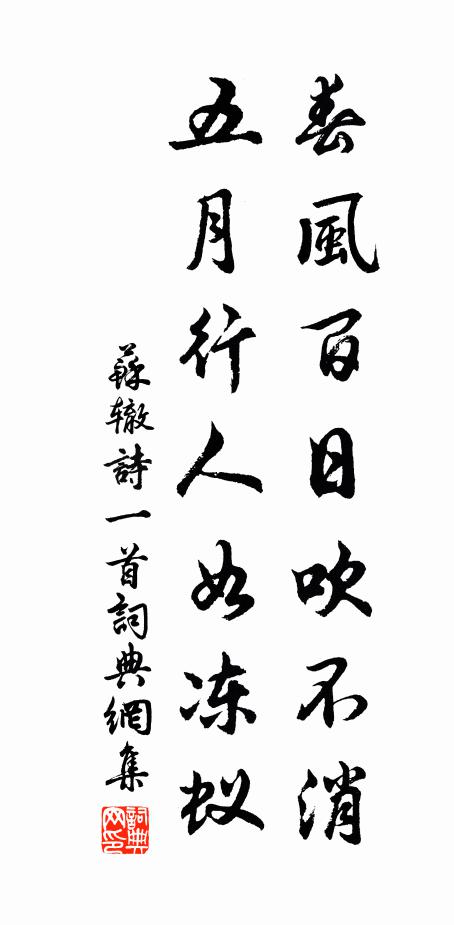 春風百日吹不消
五月行人如冻蚁
蘇辙詩一首詞典網集
詞典网印